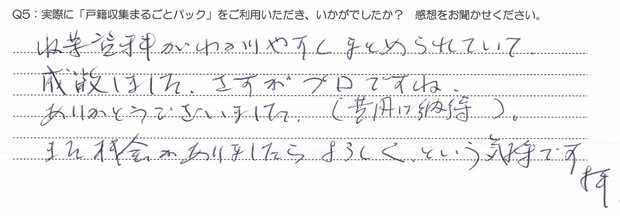 Q5:実際に「戸籍収集まるごとパック」をご利用いただき、いかがでしたか? 感想をお聞かせください。
収集資料がわかりやすくまとめられていて
感激しました。さすがプロですね。
ありがとうございました。(費用に納得)。
また機会がありましたらよろしく、という気持です
拝